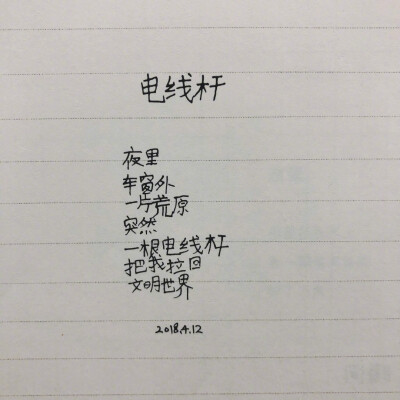 电线杆
夜里
车窗外
一片荒原
突然
一根电线杆
把我拉回
文明世界
2018.4.12